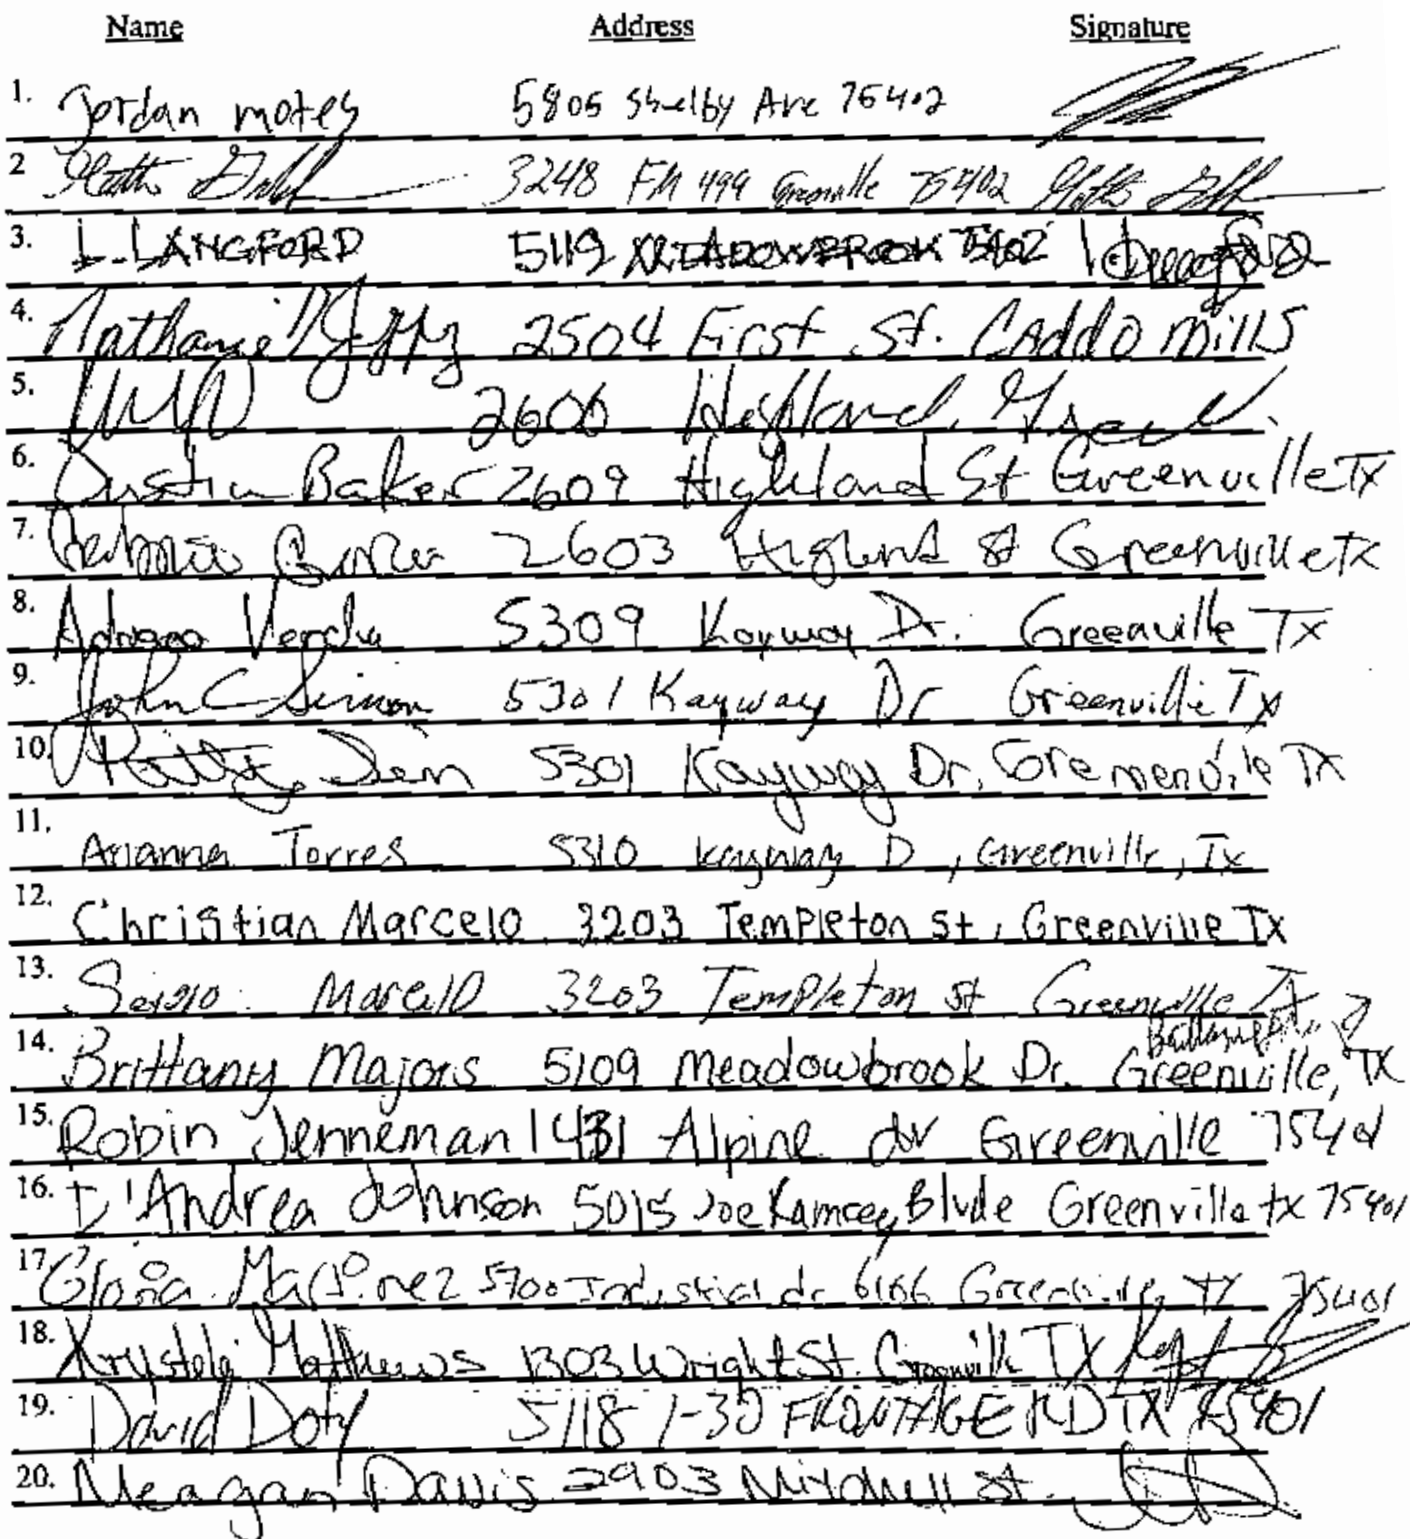 Name Address Signature
1. Jordan motes 5805 Shelby Ave 75402
2 3248 FM 499 Greenville 75402
3. L. LANGFORD 5119 MEADOWBROOK 75402
4. Nathaniel 2504 First St. CAddo Mills
5. 2606 Highland
6. Dustin Baker 2609 Highland St Greenville TX
7. 2603 St Greenville tx
8. 5309 Kayway Dr. Greenville TX
9. John C 5301 Kayway Dr Greenville Tx
10. 5301 Kayway Dr. TX
11. Arianna Torres 5310 Kayway D, Greenville, Tx
12. Christian Marcelo 3203 Templeton st, Greenville Tx
13. Sergio Marcelo 3203 Templeton st Greenville Tx
14. Brittany Majors 5109 Meadowbrook Dr. Greenville, TX
15. Robin Jenneman 1431 Alpine dr Greenville
16. D'Andrea Johnson 5015 Joe Ramsey Blvde Greenville tx 75401
17. Gloria Martinez 5700 Industrial dr 6106 Greenville, TX 75401
18. Matthews 1303 Wright St. Greenville TX
19. David Doty 5118 I-30 FRONTAGE RD TX 75401
20. Meagan Davis 2903 Mitchell st.